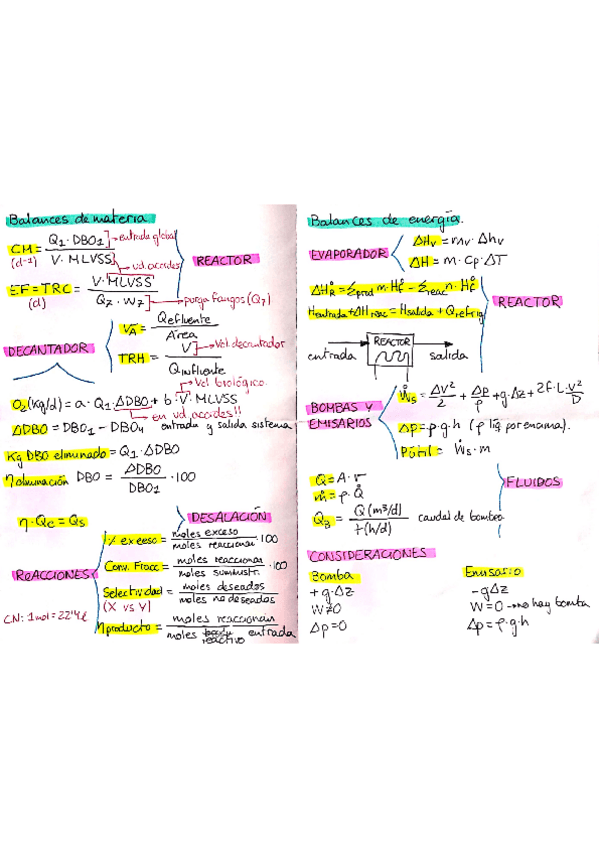 Balances de materia
CM = Q1·DBO1 / V·MLVSS → entrada global
(d-1) → ud. accides
REACTOR
EF = TRC = V·MLVSS / Q7·W7 → purga fangos (Q7)
(d)
DECANTADOR
VA = Qefluente / Área
TRH = V / Qinfluente → Vol. decantador
→ Vol. biológico.
O2 (Kg/d) = a·Q1·ΔDBO + b·V·MLVSS
→ en ud. accides!!
ΔDBO = DBO1 - DBO4 entrada y salida sistema
Kg DBO eliminado = Q1·ΔDBO
η eliminación DBO = ΔDBO / DBO1 ·100
η·Qc = Qs
DESALACIÓN
REACCIONES
% exceso = moles exceso / moles reaccionar ·100
Conv. Fracc = moles reaccionan / moles sumistr. ·100
Selectividad = moles deseados / moles no deseados
(X vs Y)
CN: 1mol = 22'4 l
η producto = moles reaccionan / moles reactivo entrada
Balances de energía.
EVAPORADOR
ΔHv = mv·Δhv
ΔH = m·Cp·ΔT
ΔH°R = Σprod m·H°f - Σreac n·H°f
REACTOR
Hentrada + ΔH reac = Hsalida + Qrefrig
REACTOR
entrada
salida
Ẇs = ΔV² / 2 + Δp / ρ + g·Δz + 2f·L·v² / D
BOMBAS Y
EMISARIOS
Δp = ρ·g·h (ρ líq por encima).
Pútil = Ẇs·m
Q = A·v
ṁ = ρ·Q̊
FLUIDOS
QB = Q (m³/d) / t (h/d) caudal de bombeo
CONSIDERACIONES
Bomba
+g·Δz
W≠0
Δp=0
Emisario
-gΔz
W=0 → no hay bomba
Δp = ρ·g·h